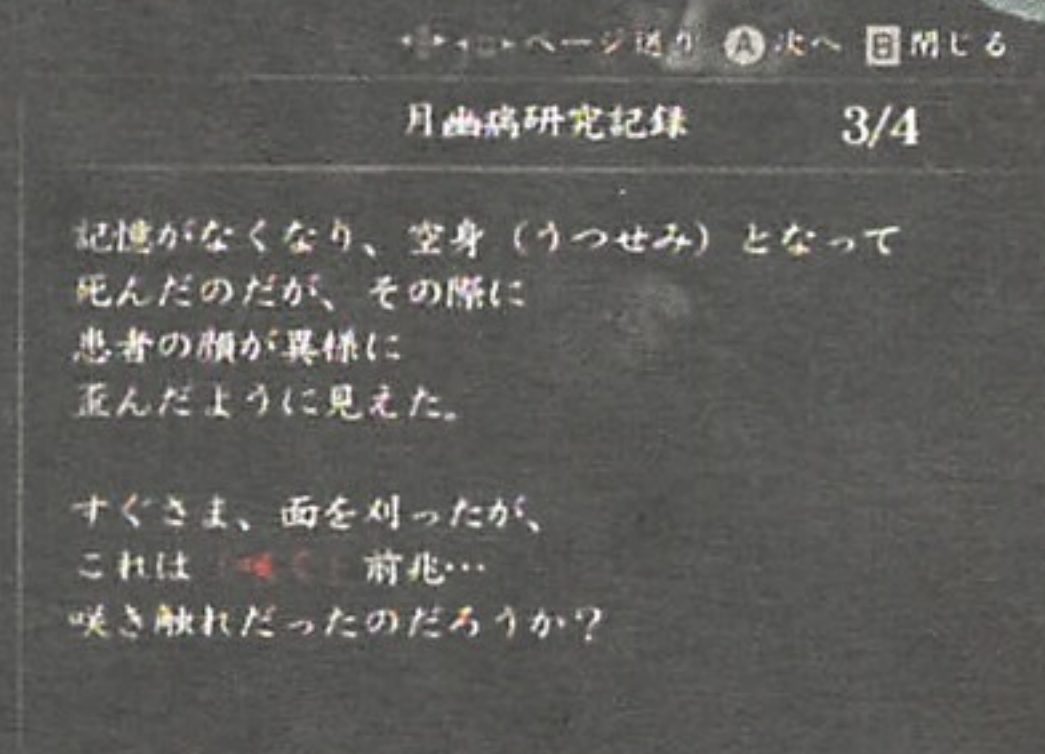 ページ送り A 次へ B 閉じる
月幽病研究記録 3/4
記憶がなくなり、空身（うつせみ）となって
死んだのだが、その際に
患者の顔が異様に
歪んだように見えた。
すぐさま、面を刈ったが、
これは「咲く」前兆…
咲き触れだったのだろうか？